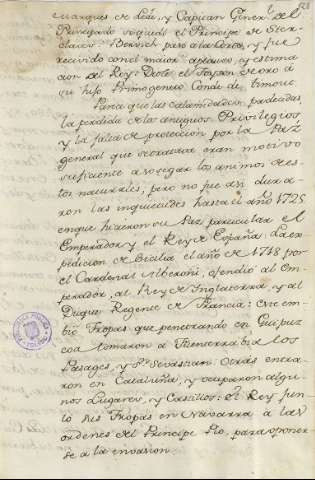 marques de Lede, y Capitan Gener.l del
Principado se quedó el Principe de Sterclaes
Bervick paso a la Corte, y fue
recivido con el maior aplauso, y estimacion
del Rey: Diole el Toyson de oro á
su hijo Primogenito Conde de
Parece que las calamidades padecidas,
la perdida de los antiguos Privilegios
y la falta de proteccion por la Paz
general que se trataba eran motivo
suficiente a sosegar los animos de estos
naturales; pero no fue asi duraron
las inquietudes hasta el año 1725
en que hicieron su Paz particular el
Emperador y el Rey de España: La expedicion
de Sicilia el año de 1718 por
el Cardenal Alberoni, ofendio al Emperador,
al Rey de Inglaterra, y al
Duque Regente de Francia: Este embio
Tropas que penetrando en Guipuzcoa
tomaron a Fuenterrabia los
Pasages, y S.n Sevastian. Otras entraron
en Cataluña, y ocuparon algunos
Lugares, y Castillos: el Rey junto
sus Tropas en Navarra a las
ordenes del Principe Pio, para oponerse
a la invasion.